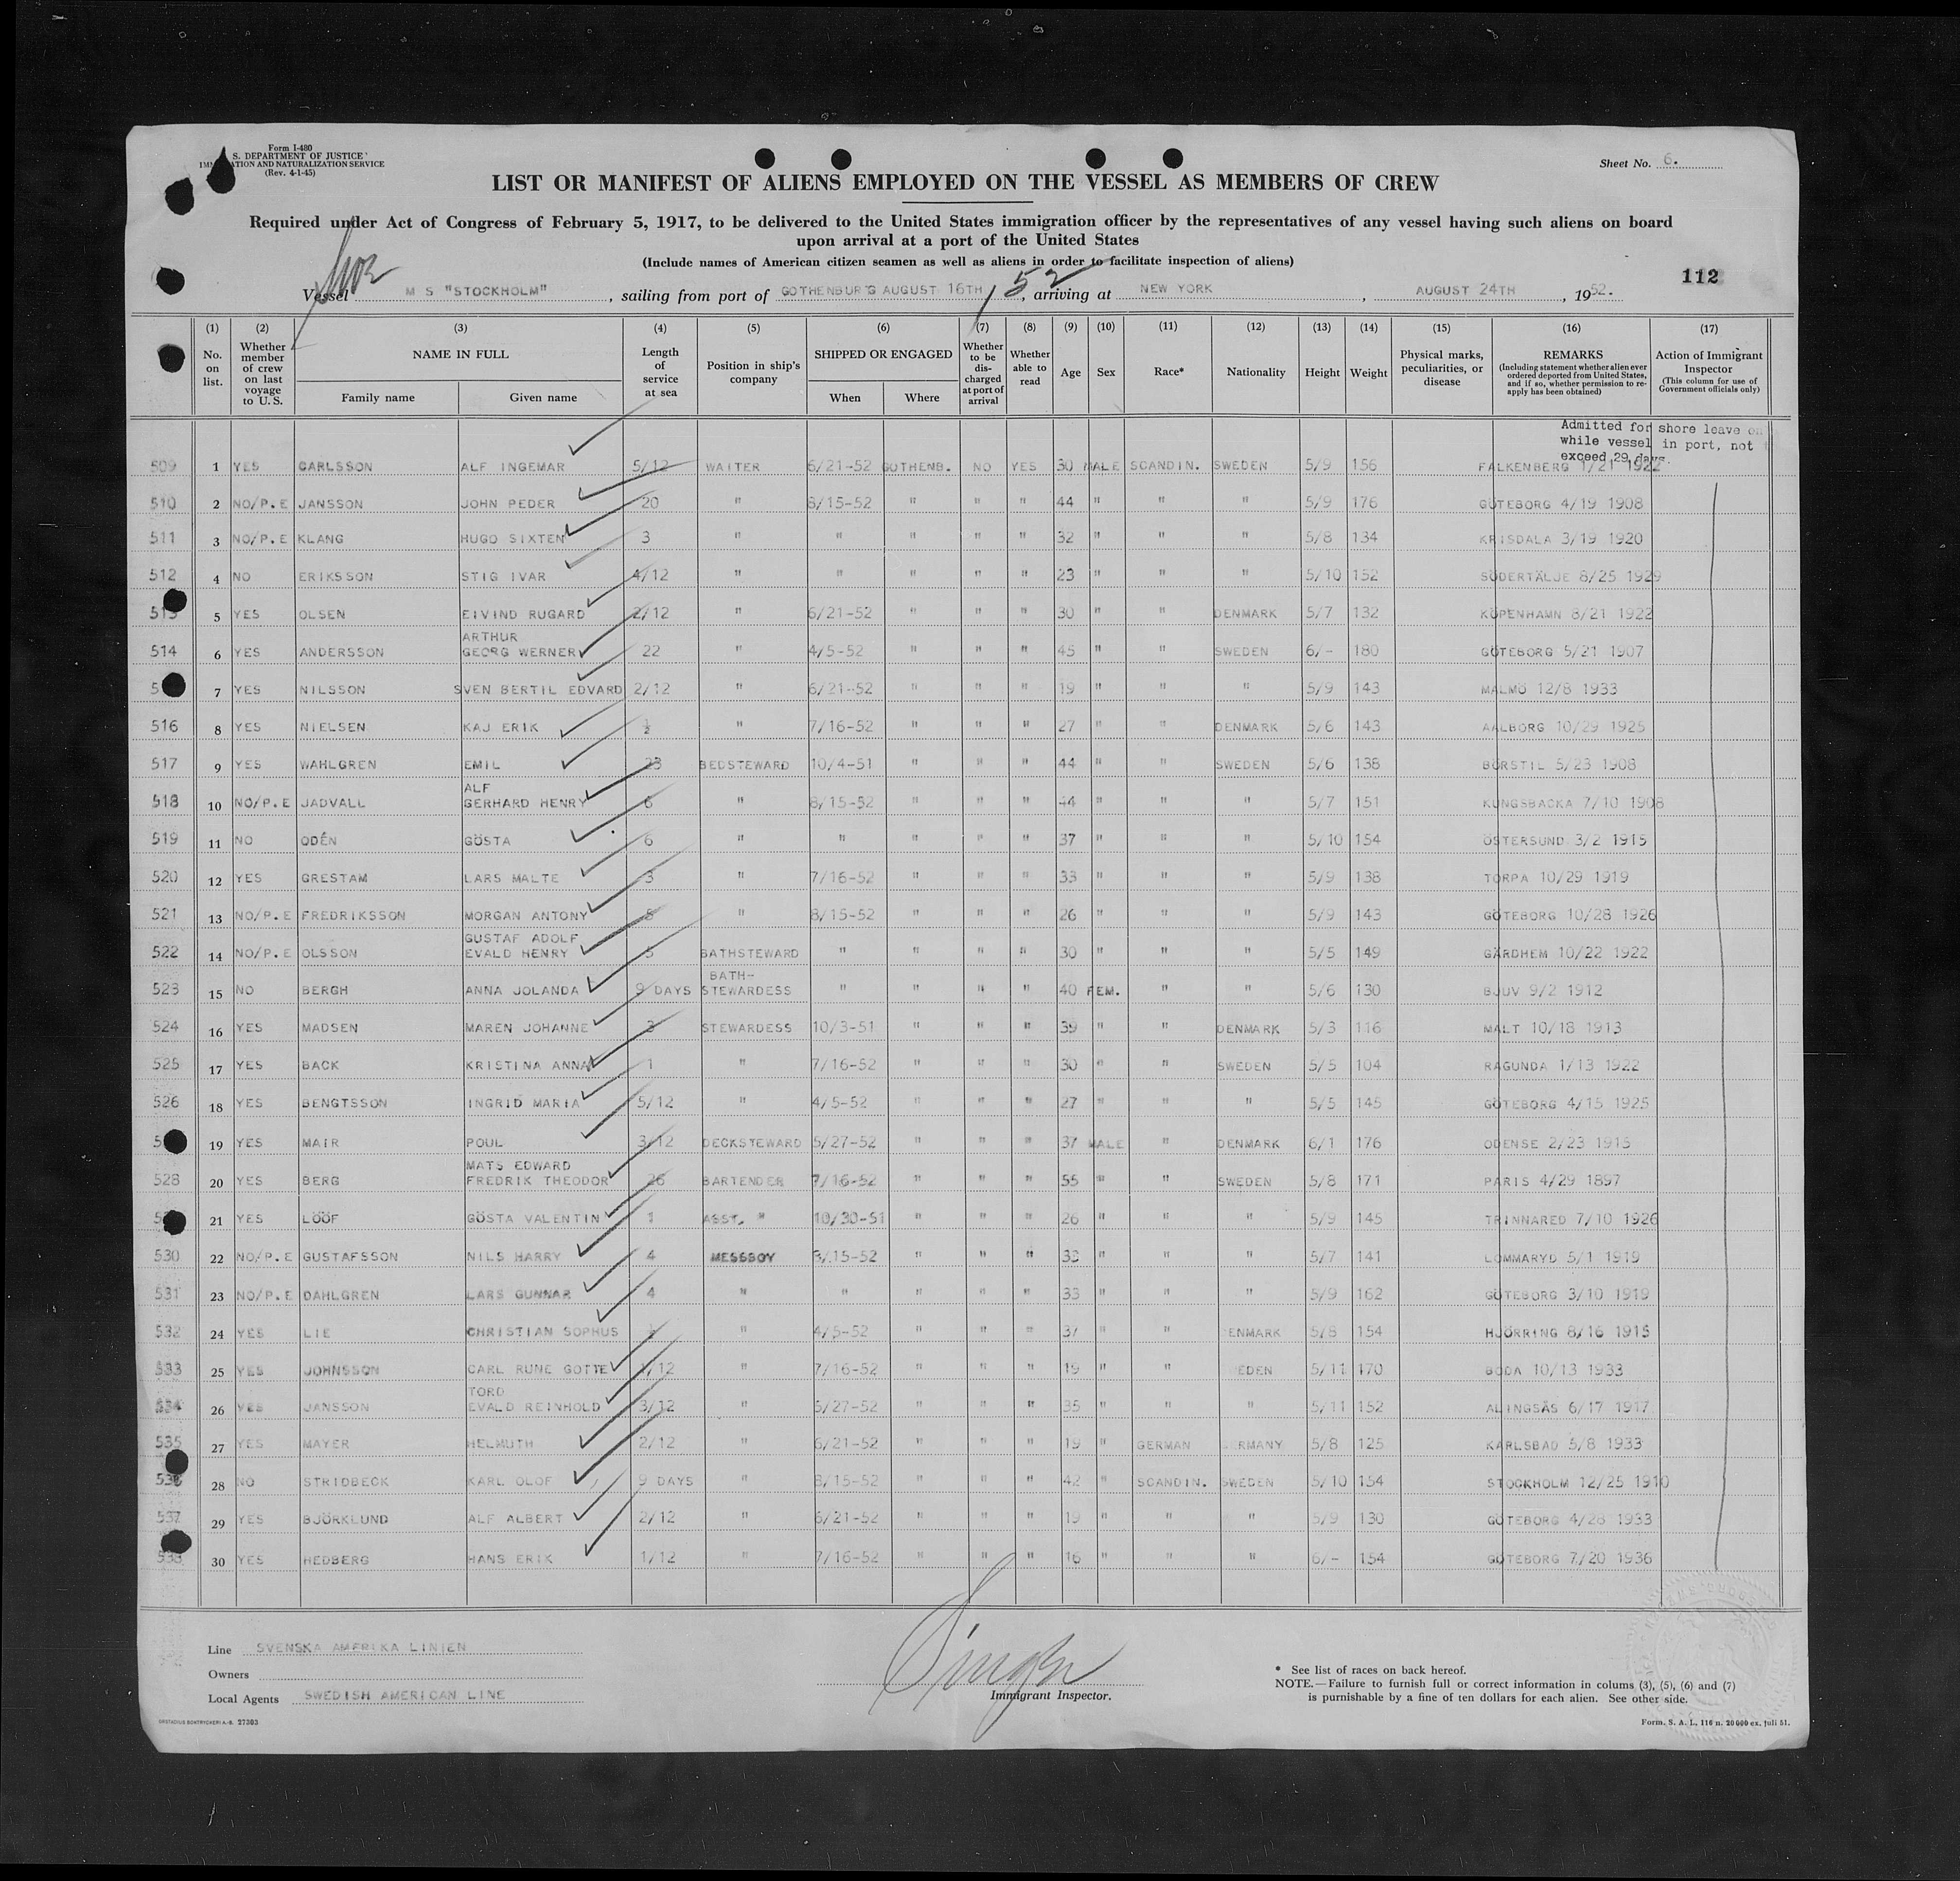 Form I-480
S. DEPARTMENT OF JUSTICE
ATION AND NATURALIZATION SERVICE
(Rev. 4-1-45)
Sheet No. 6.
LIST OR MANIFEST OF ALIENS EMPLOYED ON THE VESSEL AS MEMBERS OF CREW
Required under Act of Congress of February 5, 1917, to be delivered to the United States immigration officer by the representatives of any vessel having such aliens on board
upon arrival at a port of the United States
(Include names of American citizen seamen as well as aliens in order to facilitate inspection of aliens)
112
Vessel M S "STOCKHOLM", sailing from port of GOTHENBURG AUGUST 16TH, 52, arriving at NEW YORK, AUGUST 24TH, 1952.
(1) (2) (3) (4) (5) (6) (7) (8) (9) (10) (11) (12) (13) (14) (15) (16) (17)
No. on list. Whether member of crew on last voyage to U. S. NAME IN FULL Family name Given name Length of service at sea Position in ship's company SHIPPED OR ENGAGED When Where Whether to be dis-charged at port of arrival Whether able to read Age Sex Race* Nationality Height Weight Physical marks, peculiarities, or disease REMARKS (Including statement whether alien ever ordered deported from United States, and if so, whether permission to re-apply has been obtained) Action of Immigrant Inspector (This column for use of Government officials only)
Admitted for shore leave
while vessel in port, not
exceed 29 days.
509 1 YES CARLSSON ALF INGEMAR 5/12 WAITER 6/21-52 GOTHENB. NO YES 30 MALE SCANDIN. SWEDEN 5/9 156 FALKENBERG 1/21 1922
510 2 NO/P.E JANSSON JOHN PEDER 20 " 8/15-52 " " " 44 " " " 5/9 176 GÖTEBORG 4/19 1908
511 3 NO/P.E KLANG HUGO SIXTEN 3 " " " " " 32 " " " 5/8 134 KRISDALA 3/19 1920
512 4 NO ERIKSSON STIG IVAR 4/12 " " " " " 23 " " " 5/10 152 SÖDERTÄLJE 8/25 1929
513 5 YES OLSEN EIVIND RUGARD 2/12 " 6/21-52 " " " 30 " " DENMARK 5/7 132 KÖPENHAMN 8/21 1922
ARTHUR
514 6 YES ANDERSSON GEORG WERNER 22 " 4/5-52 " " " 45 " " SWEDEN 6/- 180 GÖTEBORG 5/21 1907
5 7 YES NILSSON SVEN BERTIL EDVARD 2/12 " 6/21-52 " " " 19 " " " 5/9 143 MALMÖ 12/8 1933
516 8 YES NIELSEN KAJ ERIK ½ " 7/16-52 " " " 27 " " DENMARK 5/6 143 AALBORG 10/29 1925
517 9 YES WAHLGREN EMIL 23 BEDSTEWARD 10/4-51 " " " 44 " " SWEDEN 5/6 138 BÖRSTIL 5/23 1908
ALF
518 10 NO/P.E JADVALL GERHARD HENRY 6 " 8/15-52 " " " 44 " " " 5/7 151 KUNGSBACKA 7/10 1908
519 11 NO ODÉN GÖSTA 6 " " " " " 37 " " " 5/10 154 ÖSTERSUND 3/2 1915
520 12 YES GRESTAM LARS MALTE 3 " 7/16-52 " " " 33 " " " 5/9 138 TORPA 10/29 1919
521 13 NO/P.E FREDRIKSSON MORGAN ANTONY 8 " 8/15-52 " " " 26 " " " 5/9 143 GÖTEBORG 10/28 1926
GUSTAF ADOLF
522 14 NO/P.E OLSSON EVALD HENRY 5 BATHSTEWARD " " " " 30 " " " 5/5 149 GÄRDHEM 10/22 1922
BATH-
523 15 NO BERGH ANNA JOLANDA 9 DAYS STEWARDESS " " " " 40 FEM. " " 5/6 130 BJUV 9/2 1912
524 16 YES MADSEN MAREN JOHANNE 3 STEWARDESS 10/3-51 " " " 39 " " DENMARK 5/3 116 MALT 10/18 1913
525 17 YES BACK KRISTINA ANNA 1 " 7/16-52 " " " 30 " " SWEDEN 5/5 104 RAGUNDA 1/13 1922
526 18 YES BENGTSSON INGRID MARIA 5/12 " 4/5-52 " " " 27 " " " 5/5 145 GÖTEBORG 4/15 1925
5 19 YES MAIR POUL 3/12 DECKSTEWARD 5/27-52 " " " 37 MALE " DENMARK 6/1 176 ODENSE 2/23 1915
MATS EDWARD
528 20 YES BERG FREDRIK THEODOR 26 BARTENDER 7/16-52 " " " 55 " " SWEDEN 5/8 171 PARIS 4/29 1897
5 21 YES LÖÖF GÖSTA VALENTIN 1 ASST. " 10/30-51 " " " 26 " " " 5/9 145 TRINNARED 7/10 1926
530 22 NO/P.E GUSTAFSSON NILS HARRY 4 MESSBOY 8/15-52 " " " 33 " " " 5/7 141 LOMMARYD 5/1 1919
531 23 NO/P.E DAHLGREN LARS GUNNAR 4 " " " " " 33 " " " 5/9 162 GÖTEBORG 3/10 1919
532 24 YES LIE CHRISTIAN SOPHUS ½ " 4/5-52 " " " 37 " " ENMARK 5/8 154 HJÖRRING 8/16 1915
533 25 YES JOHNSSON CARL RUNE GOTTE 1/12 " 7/16-52 " " " 19 " " EDEN 5/11 170 BODA 10/13 1933
TORD
534 26 YES JANSSON EVALD REINHOLD 3/12 " 5/27-52 " " " 35 " " " 5/11 152 ALINGSÅS 6/17 1917
535 27 YES MAYER HELMUTH 2/12 " 6/21-52 " " " 19 " GERMAN ERMANY 5/8 125 KARLSBAD 5/8 1933
536 28 NO STRIDBECK KARL OLOF 9 DAYS " 8/15-52 " " " 42 " SCANDIN. SWEDEN 5/10 154 STOCKHOLM 12/25 1910
537 29 YES BJÖRKLUND ALF ALBERT 2/12 " 6/21-52 " " " 19 " " " 5/9 130 GÖTEBORG 4/28 1933
538 30 YES HEDBERG HANS ERIK 1/12 " 7/16-52 " " " 16 " " " 6/- 154 GÖTEBORG 7/20 1936
Line SVENSKA AMERIKA LINIEN
Owners
Local Agents SWEDISH AMERICAN LINE
Immigrant Inspector.
* See list of races on back hereof.
NOTE.—Failure to furnish full or correct information in colums (3), (5), (6) and (7)
is punishable by a fine of ten dollars for each alien. See other side.
27303
Form. S. A. L. 116 n. 20 000 ex. juli 51.